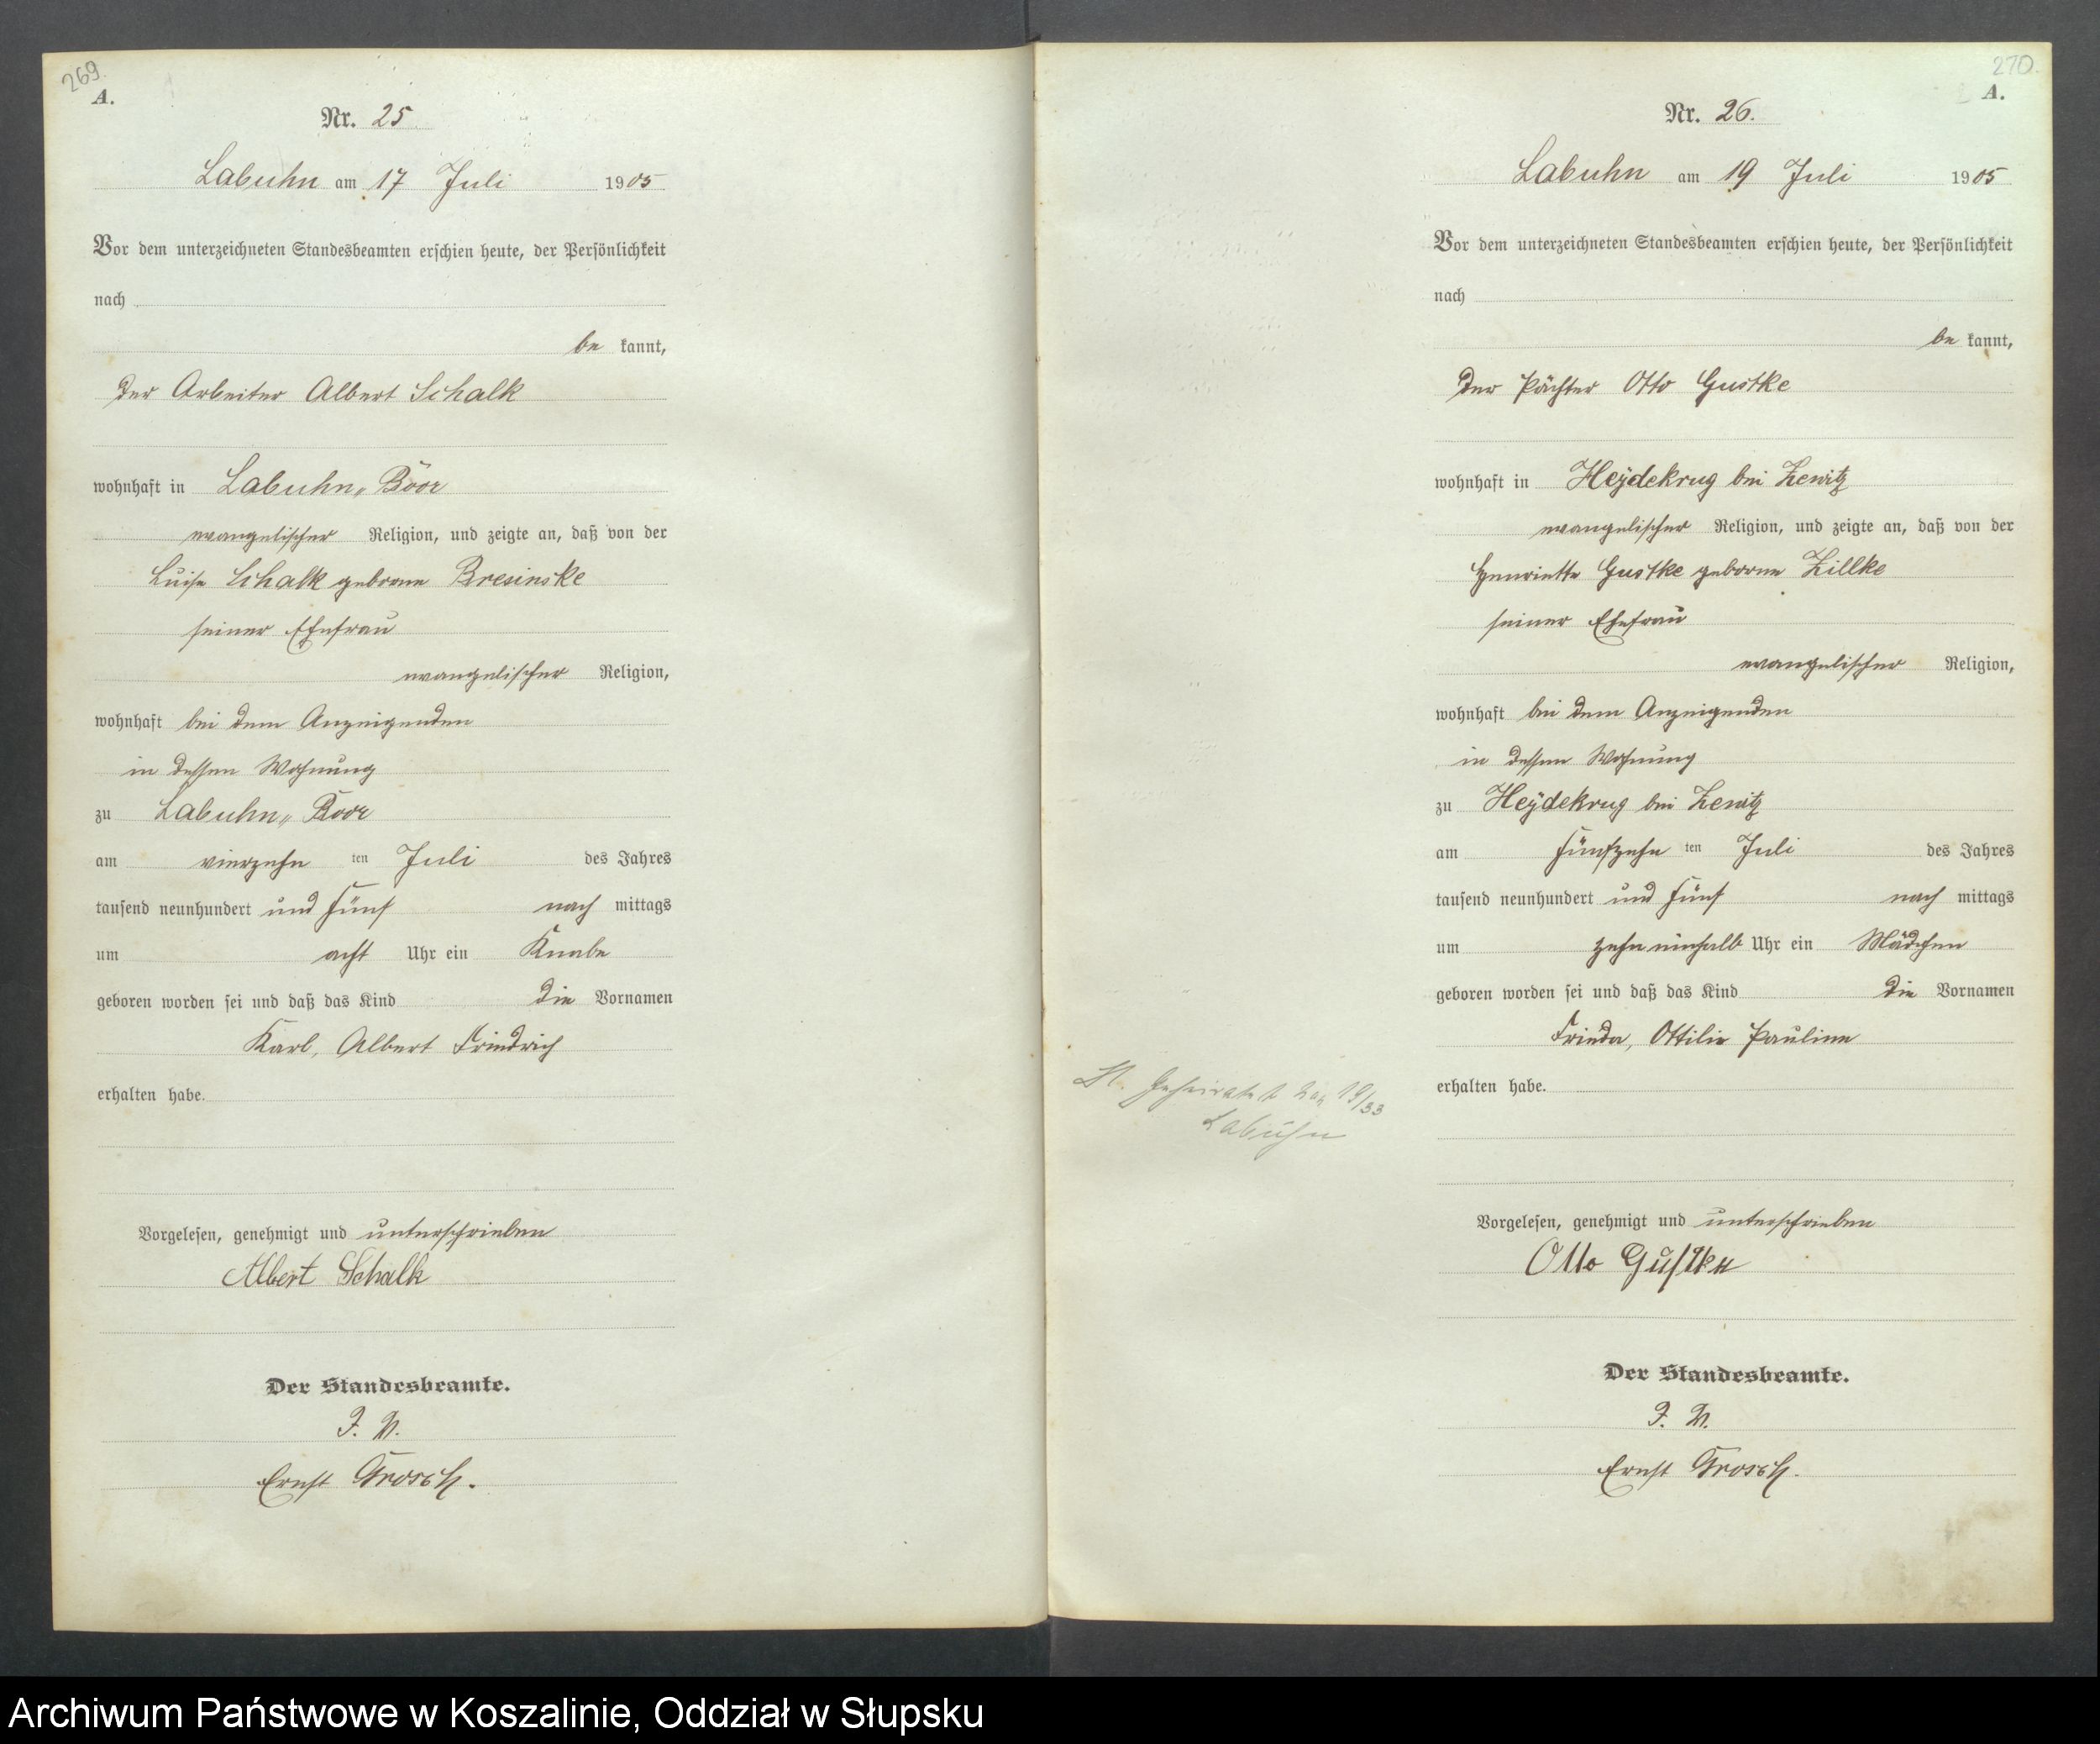 269.
A.
Nr. 25
Labuhn am 17 Juli 1905
Vor dem unterzeichneten Standesbeamten erschien heute, der Persönlichkeit
nach
be kannt,
der Arbeiter Albert Schalk
wohnhaft in Labuhn,,
evangelischer Religion, und zeigte an, daß von der
Luise Schalk geborne Bresinske
seiner Ehefrau
evangelischer Religion,
wohnhaft bei dem Anzeigenden
in dessen Wohnung
zu Labuhn,,
am vierzehn ten Juli des Jahres
tausend neunhundert und fünf nach mittags
um acht Uhr ein Knabe
geboren worden sei und daß das Kind die Vornamen
Karl, Albert Friedrich
erhalten habe.
Vorgelesen, genehmigt und unterschrieben
Albert Schalk
Der Standesbeamte.
J. V.
Ernst
270.
A.
Nr. 26.
Labuhn am 19 Juli 1905
Vor dem unterzeichneten Standesbeamten erschien heute, der Persönlichkeit
nach
be kannt,
der Pächter Otto Gustke
wohnhaft in Heÿdekrug bei Zewitz
evangelischer Religion, und zeigte an, daß von der
Henriette Gustke geborne Zillke
seiner Ehefrau
evangelischer Religion,
wohnhaft bei dem Anzeigenden
in dessen Wohnung
zu Heÿdekrug bei Zewitz
am fünfzehn ten Juli des Jahres
tausend neunhundert und fünf nach mittags
um zehn einhalb Uhr ein Mädchen
geboren worden sei und daß das Kind die Vornamen
Frieda, Ottilie Pauline
erhalten habe.
Geheiratet 19/33
Labuhn
Vorgelesen, genehmigt und unterschrieben
Otto Gustke
Der Standesbeamte.
J. V.
Ernst
Archiwum Państwowe w Koszalinie, Oddział w Słupsku